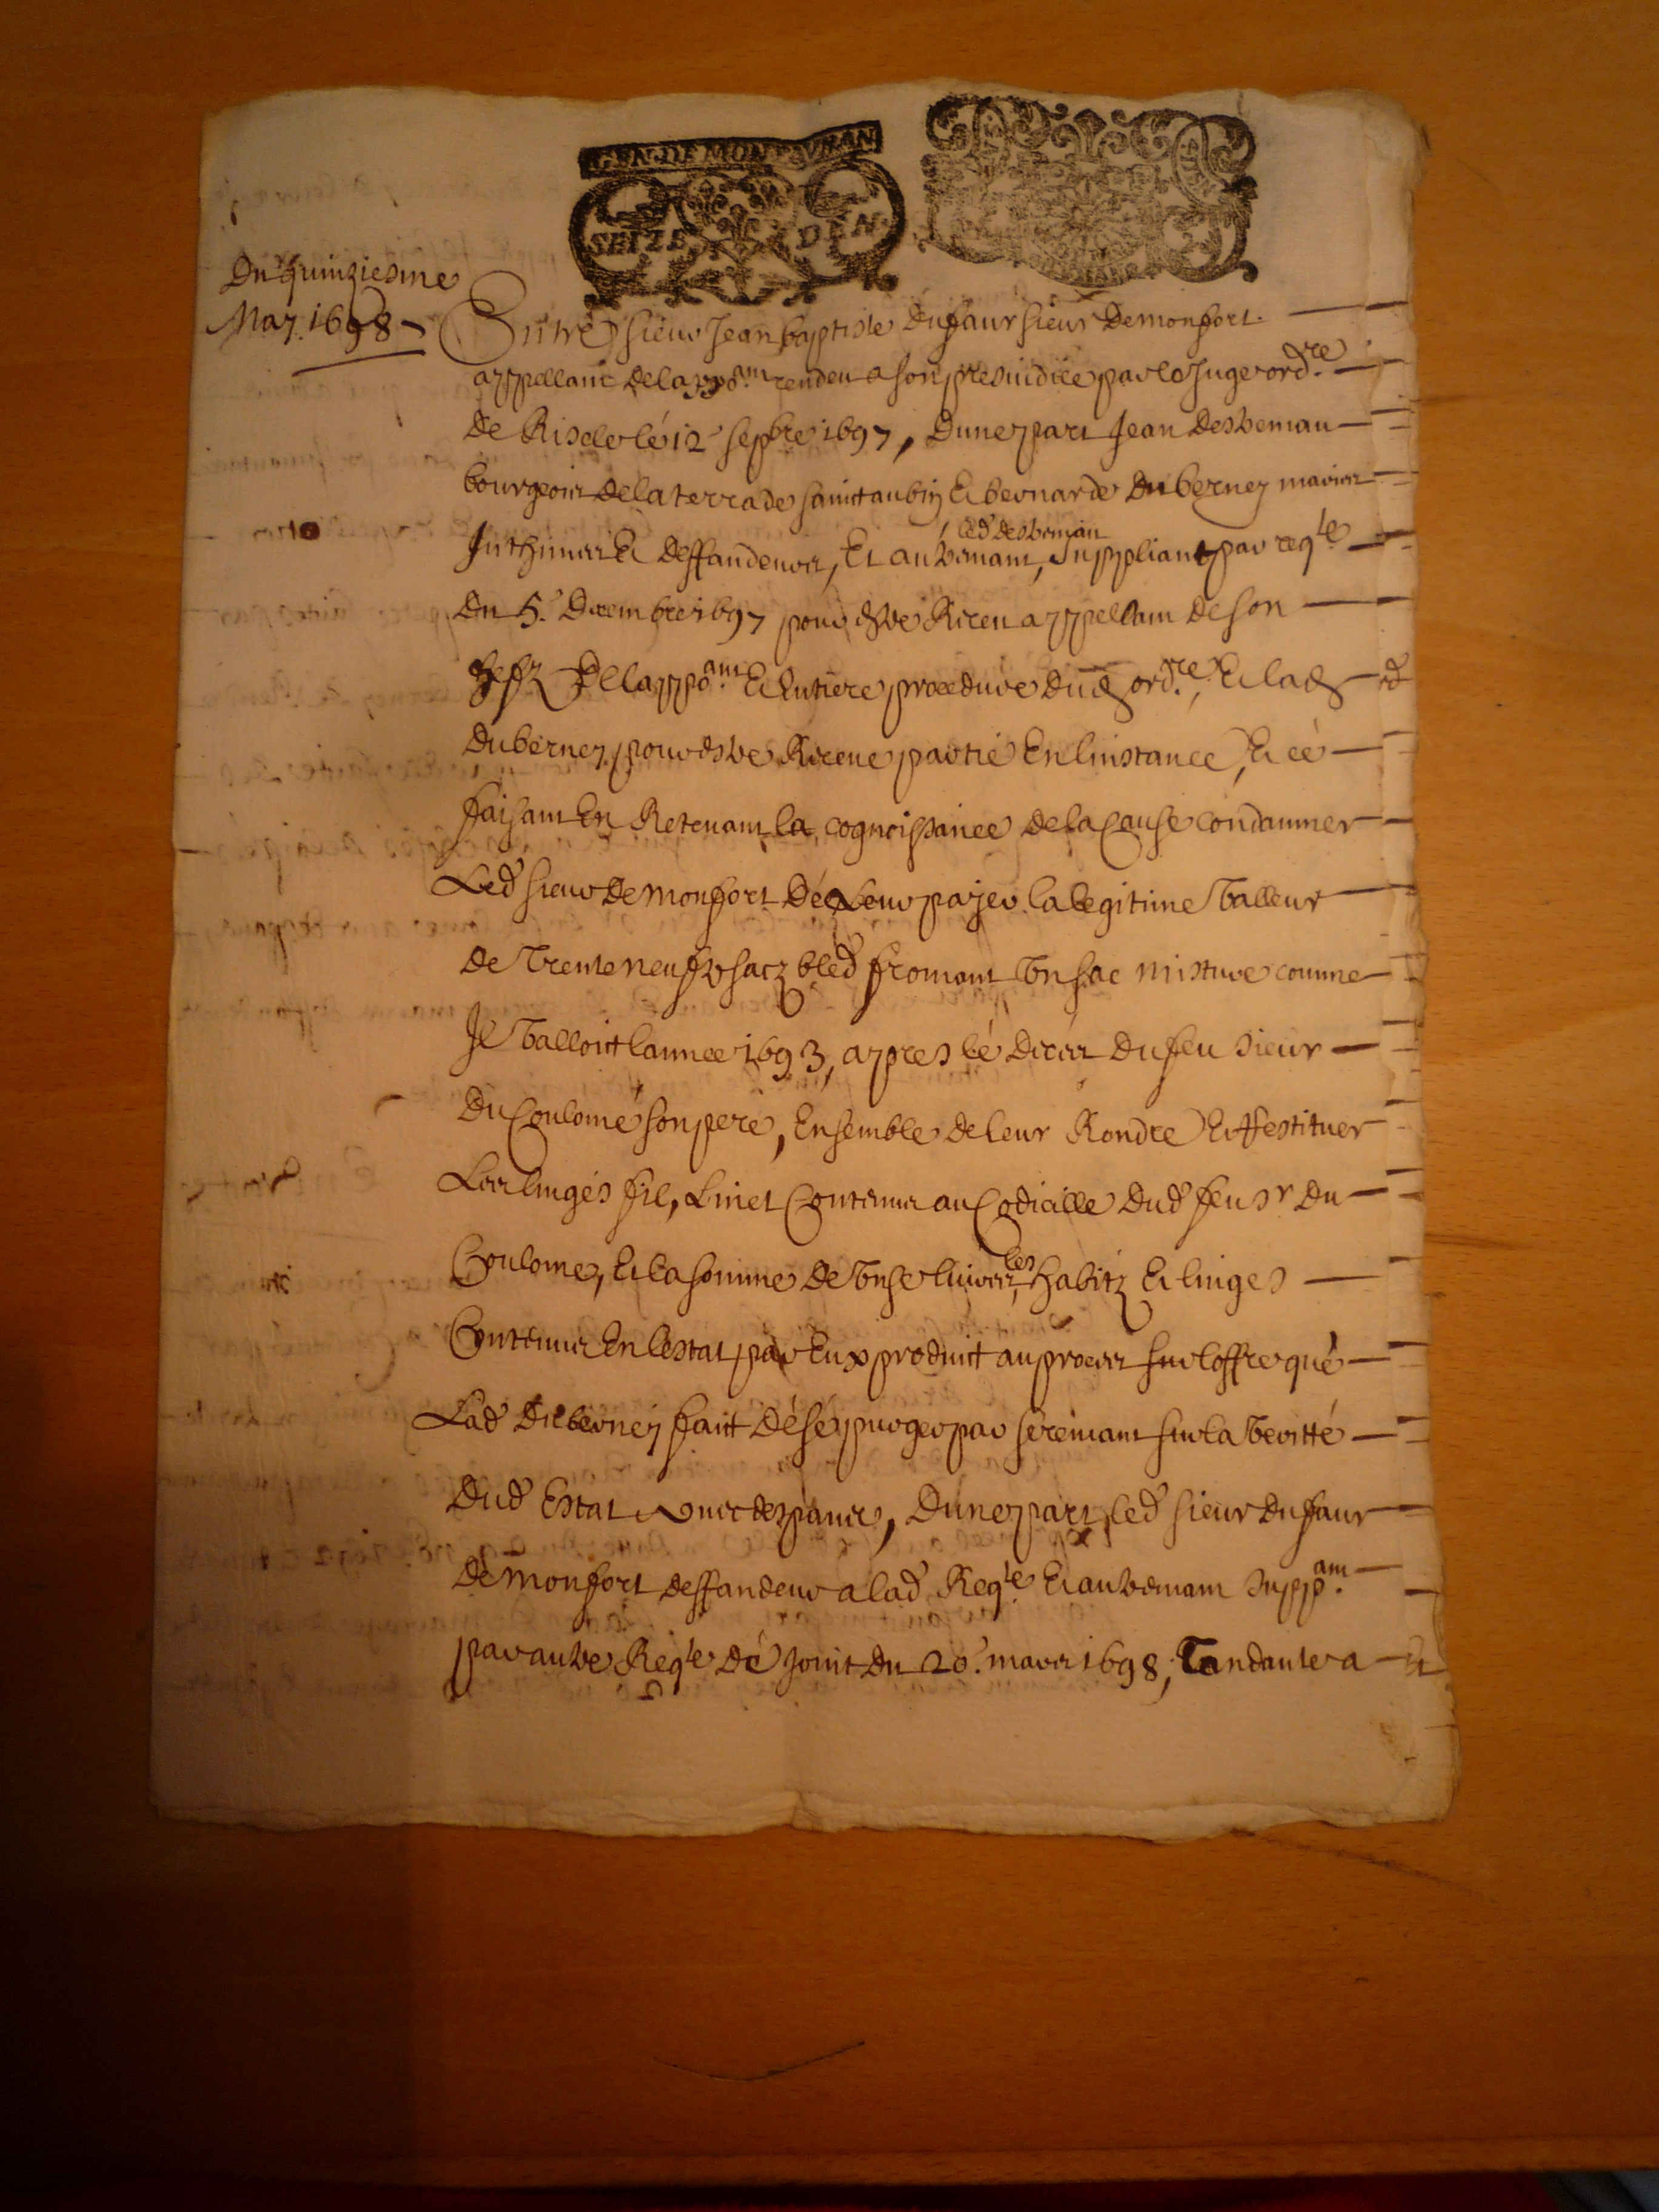 GEN. DE MONTAUBAN
SEIZE DEN.
Du quinziesme
May 1698
Entre sieur Jean baptiste dufaur sieur de monfort
appellant de lappo.ant rendeu a son presiudice par le Juge ord.re
de Riscle le 12 sepbre 1697, dune part Jean desbeman
bourgeois de la terrade sainct aubin Et bernarde duberney maries
Inthimes Et deffandeurs, Et autremant, led desbeman suppliant par reqte
du 5. decembre 1697 pour estre Receu appellant de son
chef de lappo.ant Et entiere procedure dud ord.re, Et lad
duberney pour estre Receue partie En linstance, Et ce
faisant En Retenant la cognoissance de la Cause condamner
Led sieur de monfort de leur payer la legitime valleur
de trente neuf sacz bled fromant un sac misture comme
Il valloict lannee 1693, appres le deces du feu sieur
du Coulome son pere, Ensemble de leur Randre Et Restituer
Les linges fil, linet Contenus au Codicille dud feu sr du
Coulome, Et la somme de unse livres, les habitz Et linges
Contenus En lestat par Eux produict au proces sur loffre que
Lad duberney faict de se purger par seremant sur la veritté
dud Estat avec despans, dune part, led sieur dufaur
de monfort deffandeur a lad Reqte Et autremant supp.ant
par autre Reqte de Joint du 20. mars 1698, Tandante a